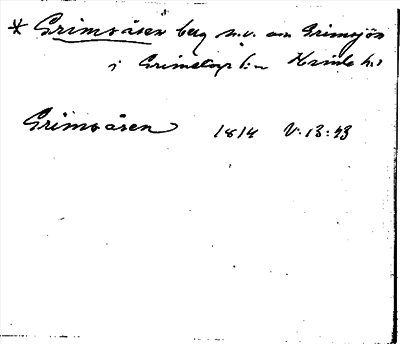 * Grimsåsen berg n.v. om Grimsjön
i Grimetorp f:n Kvinde hd
Grimsåsen 1814 V. 13:43